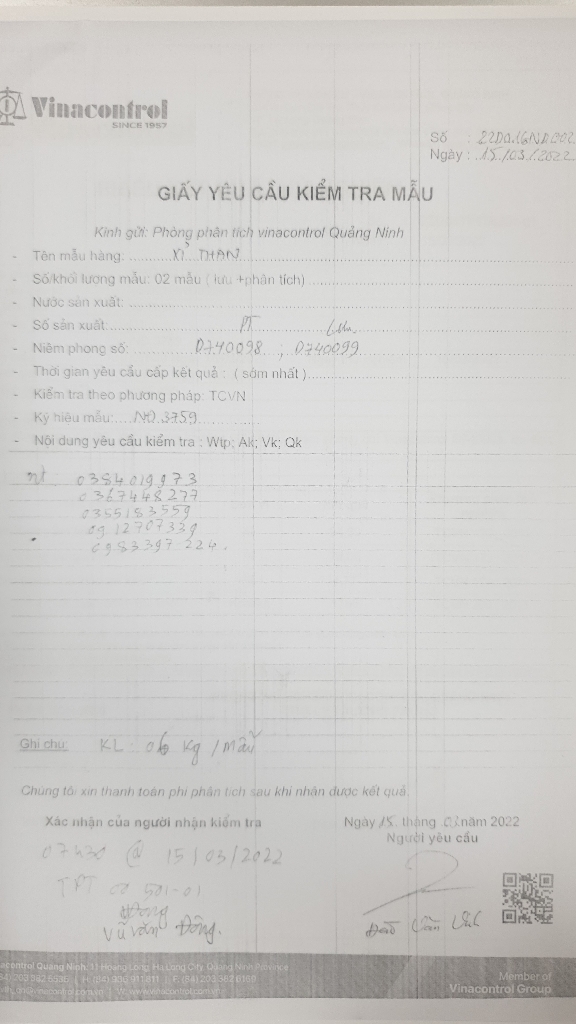 Vinacontrol
SINCE 1957
Số :
Ngày : 15/03/2022
GIẤY YÊU CẦU KIỂM TRA MẪU
Kính gửi: Phòng phân tích vinacontrol Quảng Ninh
- Tên mẫu hàng: XỈ THAN
- Số/khối lượng mẫu: 02 mẫu ( lưu +phân tích)
- Nước sản xuất:
- Số sản xuất: PT Lưu
- Niêm phong số: 0740098 ; 0740099
- Thời gian yêu cầu cấp kết quả : ( sớm nhất )
- Kiểm tra theo phương pháp: TCVN
- Ký hiệu mẫu: NO.3759
- Nội dung yêu cầu kiểm tra : Wtp; Ak; Vk; Qk
0384019973
0367448277
0355183559
0912707339
0983397224.
Ghi chú: KL 06 kg / Mẫu
Chúng tôi xin thanh toán phí phân tích sau khi nhận được kết quả.
Xác nhận của người nhận kiểm tra
Ngày 15 tháng 03 năm 2022
Người yêu cầu
07h30 @ 15/03/2022
TPT 00 501-01
Đông
Vũ Văn Đông.
Đào Văn
acontrol Quảng Ninh: 11 Hoang Long, Ha Long City, Quang Ninh Province
Member of
Vinacontrol Group